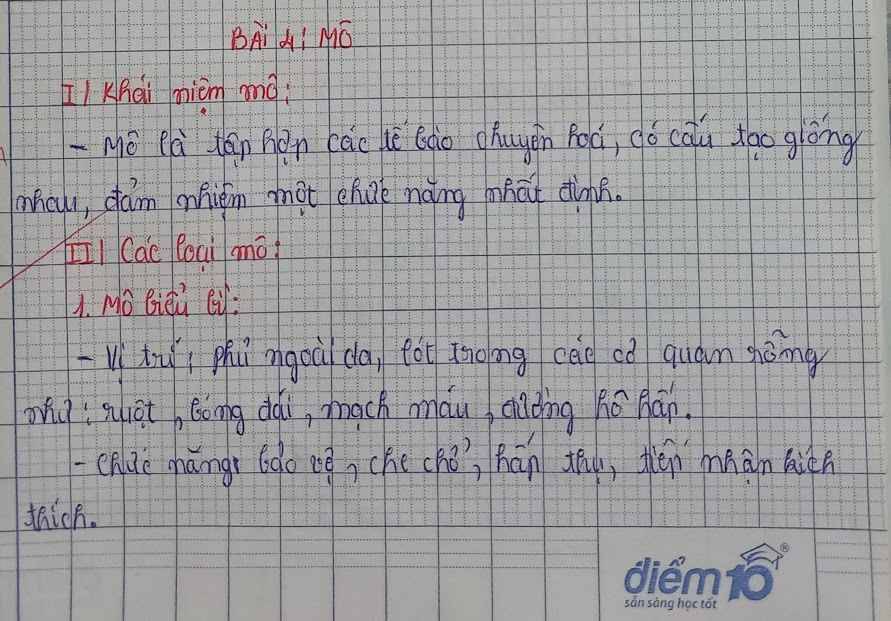 BÀI 4: MÔ
I/ Khái niệm mô:
- Mô là tập hợp các tế bào chuyên hoá, có cấu tạo giống
nhau, đảm nhiệm một chức năng nhất định.
II/ Các loại mô:
1. Mô biểu bì:
- Vị trí: phủ ngoài da, lót trong các cơ quan rỗng
như: ruột, bóng đái, mạch máu, đường hô hấp.
- Chức năng: bảo vệ, che chở, hấp thụ, tiếp nhận kích
thích.
điểm10®
sẵn sàng học tốt